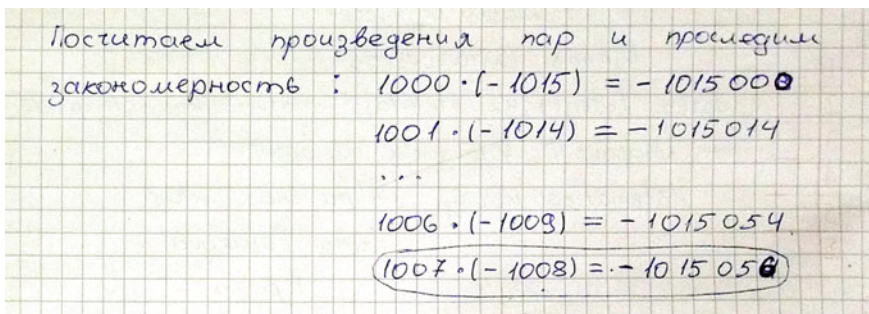 Посчитаем произведения пар и проследим
закономерность : 1000·(-1015) = -1015000
1001·(-1014) = -1015014
...
1006·(-1009) = -1015054
1007·(-1008) = -1015056